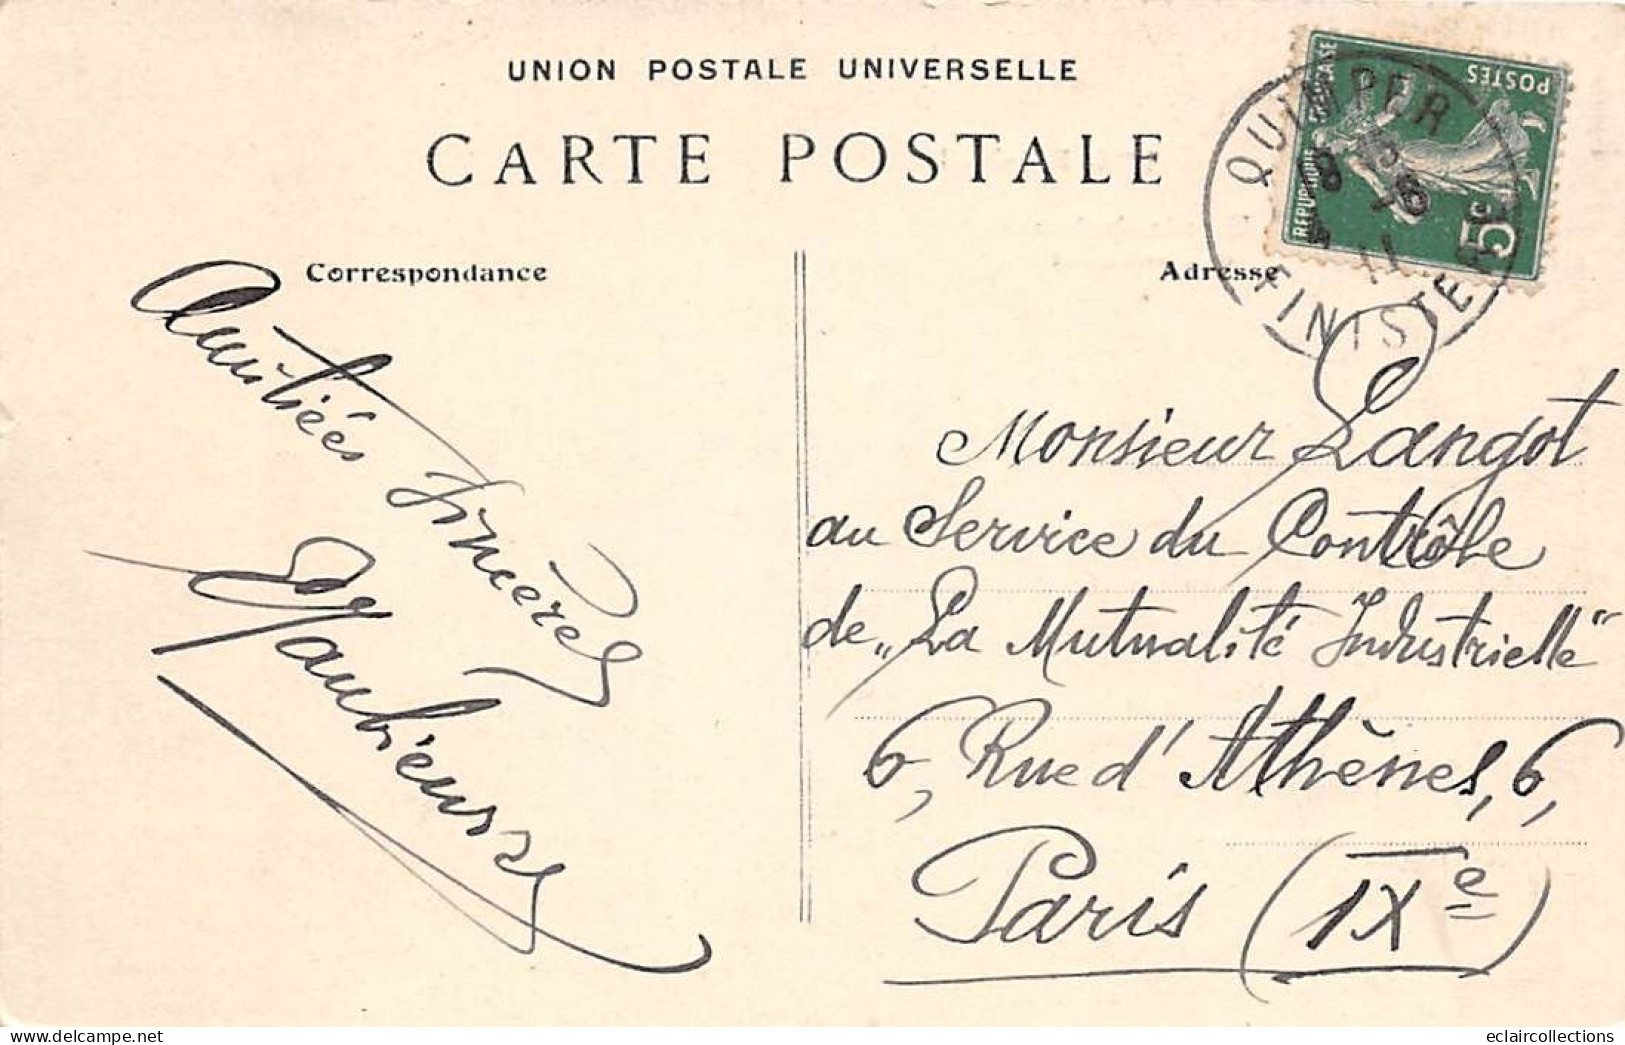 UNION POSTALE UNIVERSELLE
CARTE POSTALE
Correspondance
Adresse
RÉPUBLIQUE FRANÇAISE
POSTES
5c
QUIMPER
11
FINISTERE
Amitiées
sincères
Monsieur Langot
au Service du Contrôle
de „La Mutualité Industrielle"
6, Rue d'Athènes, 6,
Paris (IXe)
eclaircollections